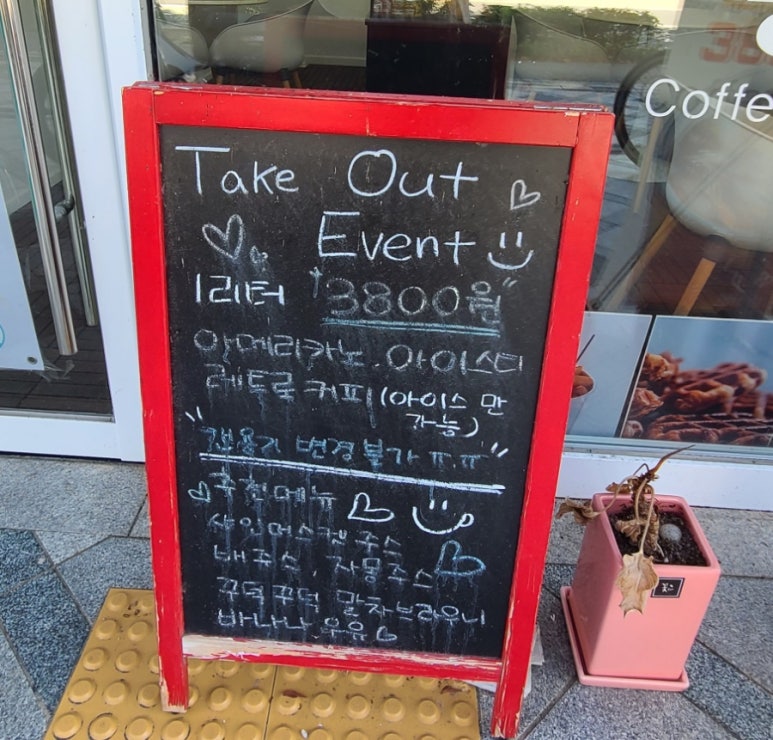 Take Out
Event
1리터 "3800원"
아메리카노. 아이스티
레트로커피 (아이스 만
가능)
"캔용기 변경불가 ㅠ.ㅠ"
추천메뉴
샤인머스캣주스
배주스. 자몽주스
꾸덕꾸덕 말차브라우니
바나나 우유
Coffe